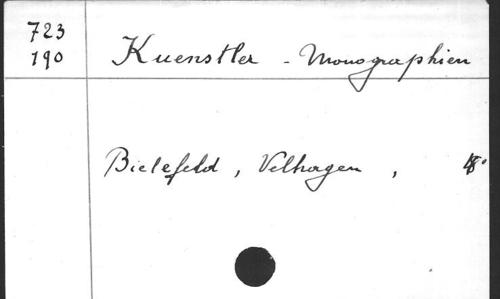 723
190
Kuenstler - Monographien
Bielefeld, Velhagen, 8°